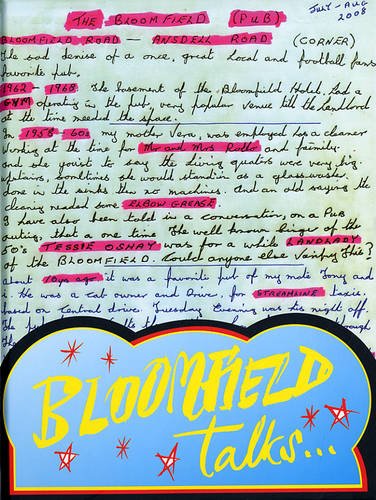 JULY - AUG
2008
THE BLOOMFIELD (PUB)
BLOOMFIELD ROAD - ANSDELL ROAD (CORNER)
The sad demise of a once, great local and football fans
favorite pub.
1962 - 1968 The basement of the Bloomfield Hotel, had a
GYM operating in the pub, very popular venue till the landlord
at the time needed the space.
In 1958-60s my mother Vera, was employed has a cleaner
working at the time for Mr and Mrs and family.
and she youst to say the living quaters were very big.
upstairs, sometimes she would standin as a glass washer.
done in the sinks then no machines. And an old saying the
cleaning needed some ELBOW GREASE.
I have also been told in a conversation, on a Pub
outing, that a one time The well known singer of the
50's TESSIE OSHAY was for a while LANDLADY
of the BLOOMFIELD. Could anyone else Verify This?
about 10yrs ago it was a favorite pub of my mate Tony and
i. He was a cab owner and Drive, for STREAMLINE taxis
based on Central drive. Tuesday Evening was his night off.
The
through
BLOOMFIELD
talks...